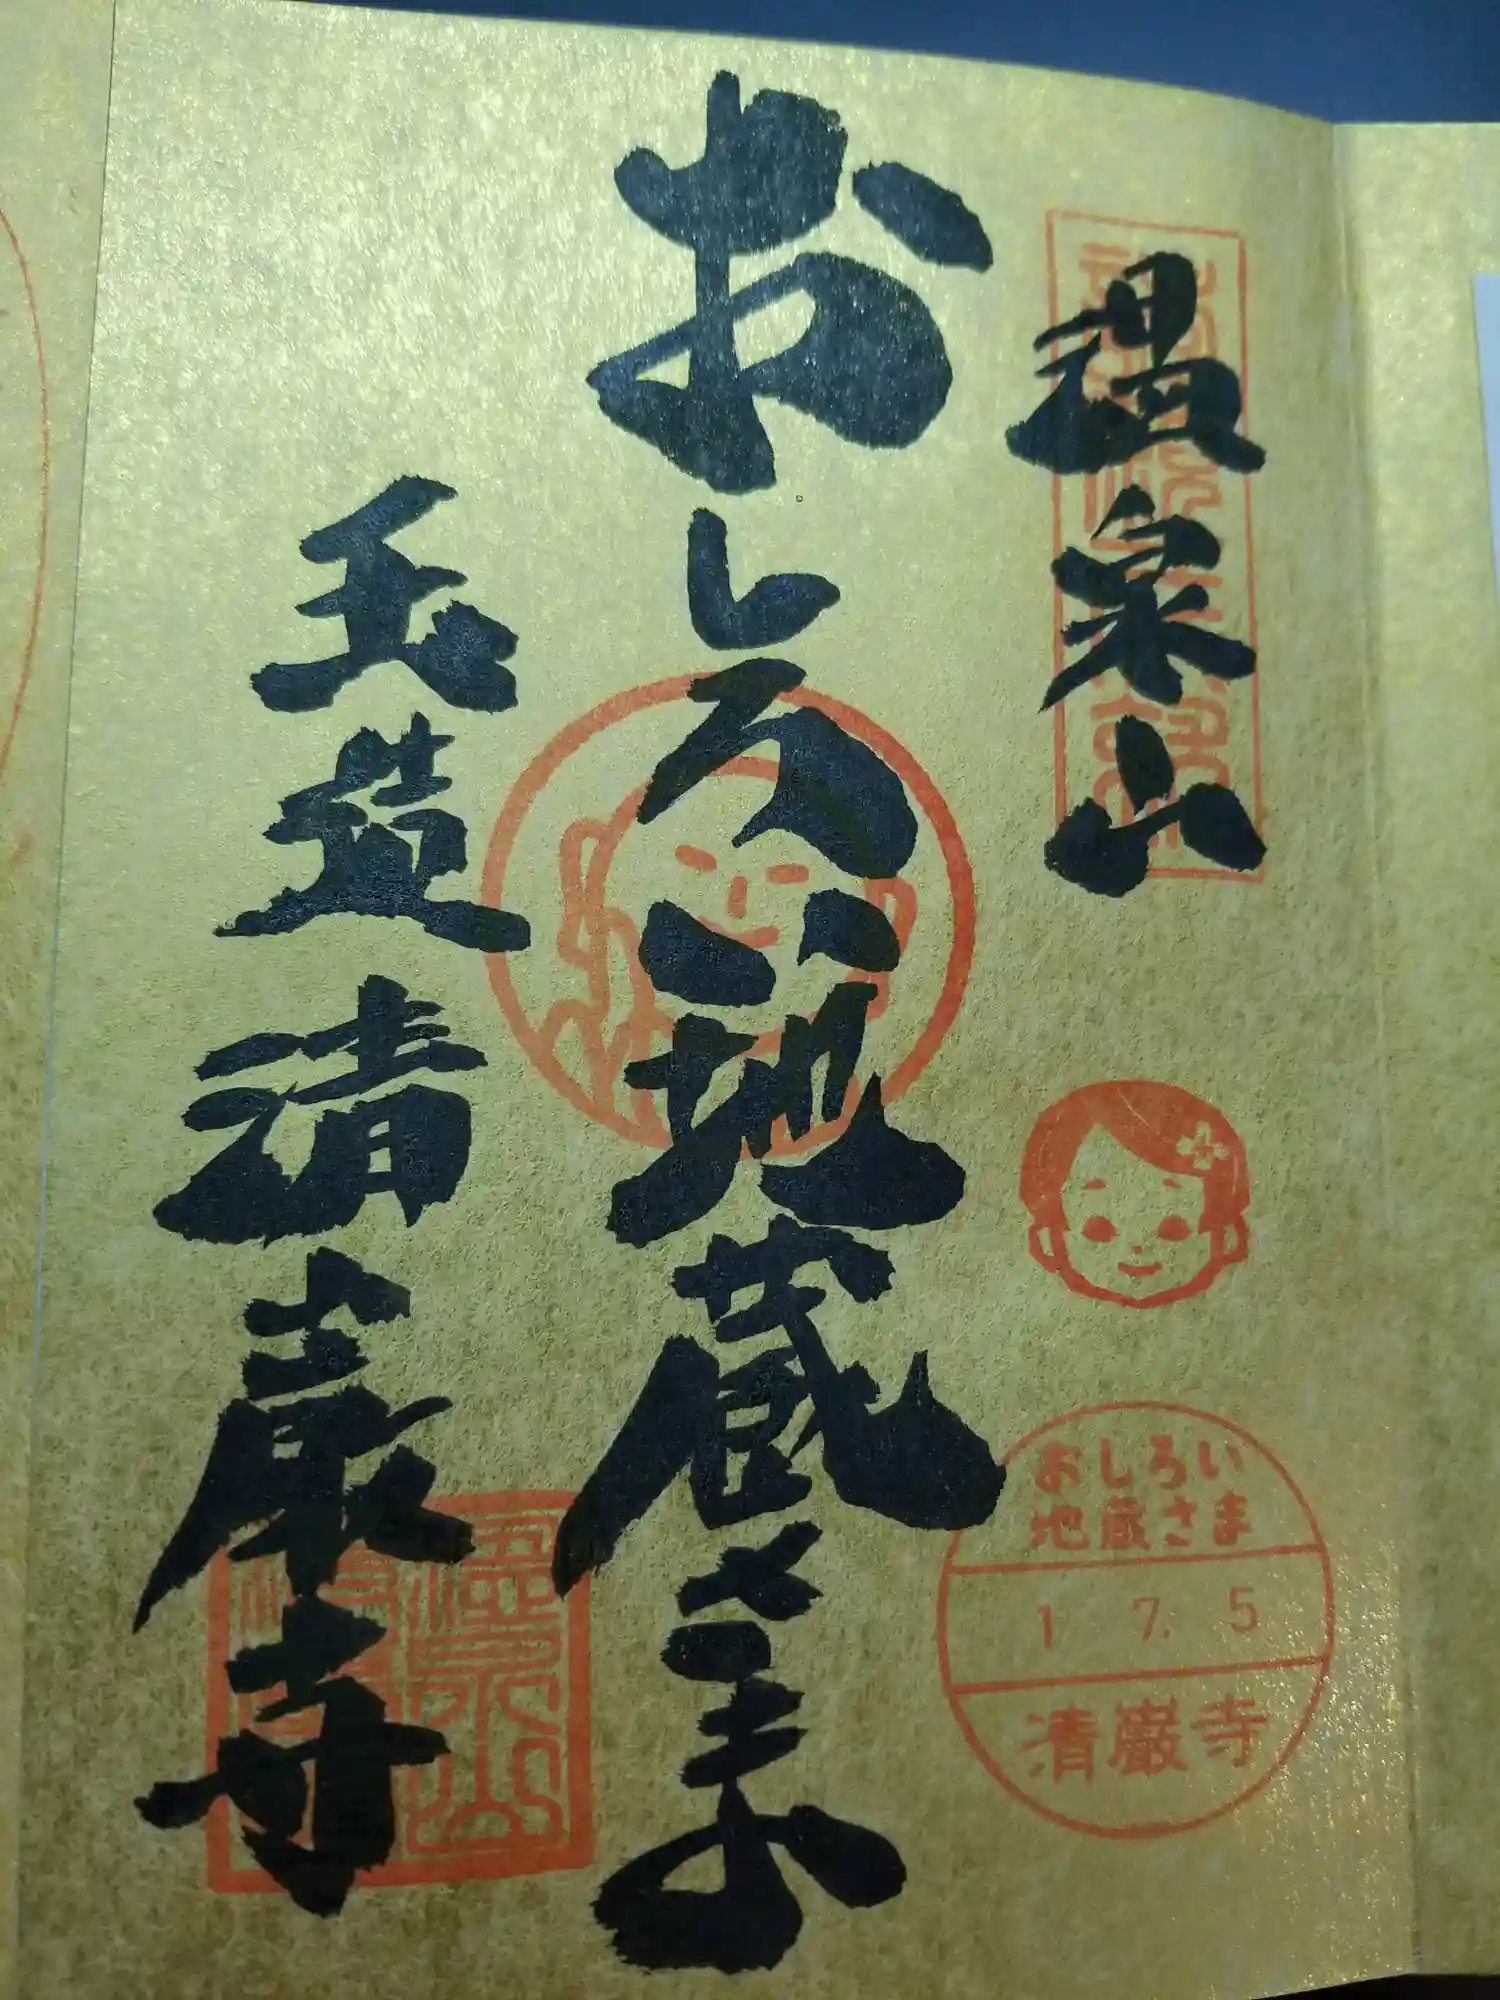 温泉山
おしろい地蔵さま
玉造清巌寺
おしろい
地蔵さま
1 7. 5
清巌寺